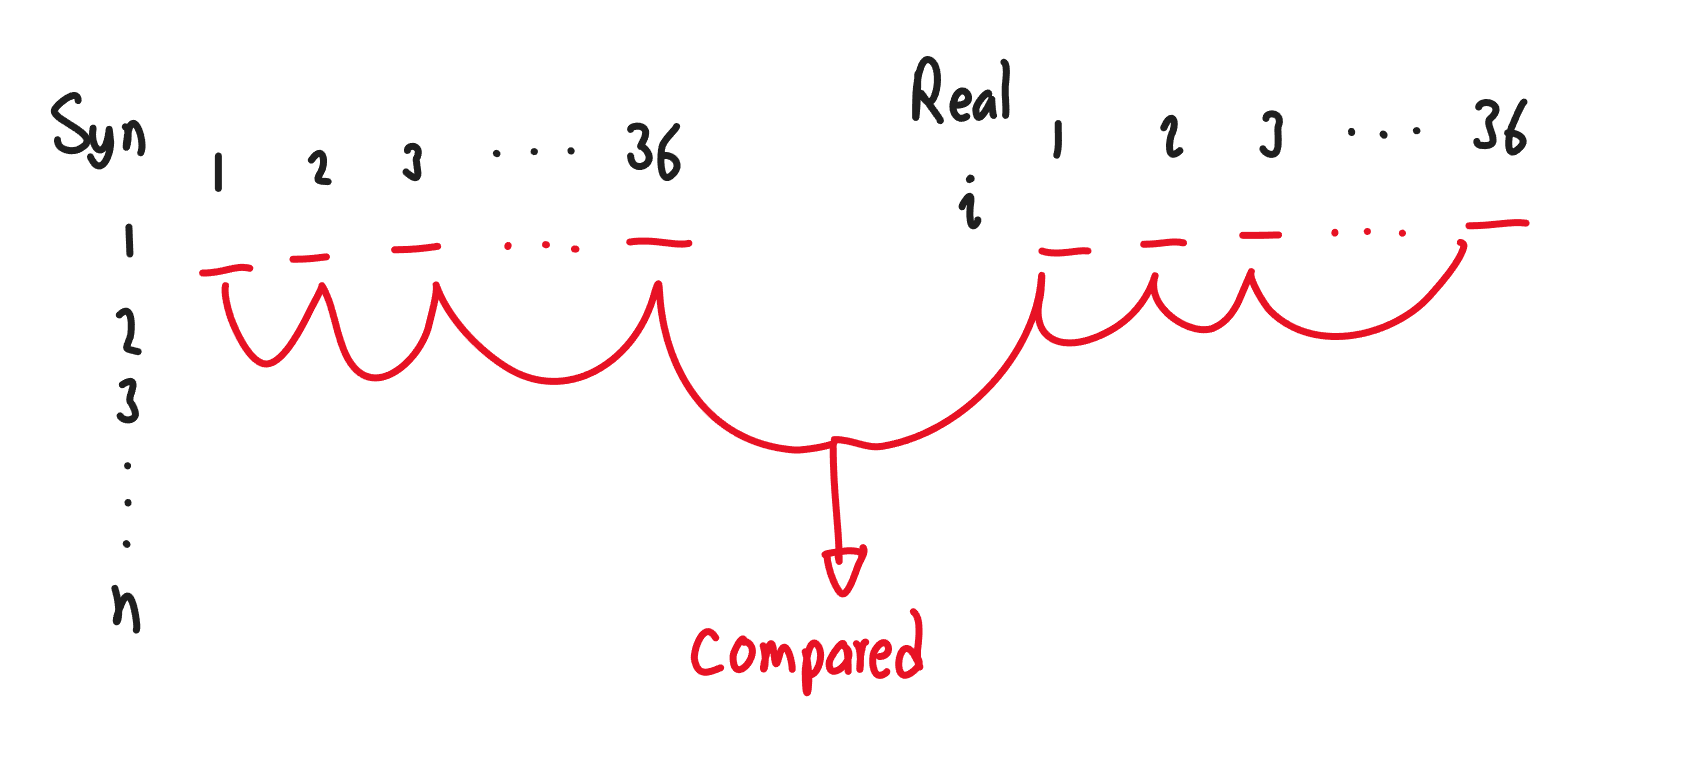 Syn 1 2 3 ... 36
1
2
3
.
.
.
n
Real 1 2 3 ... 36
i
...
...
Compared